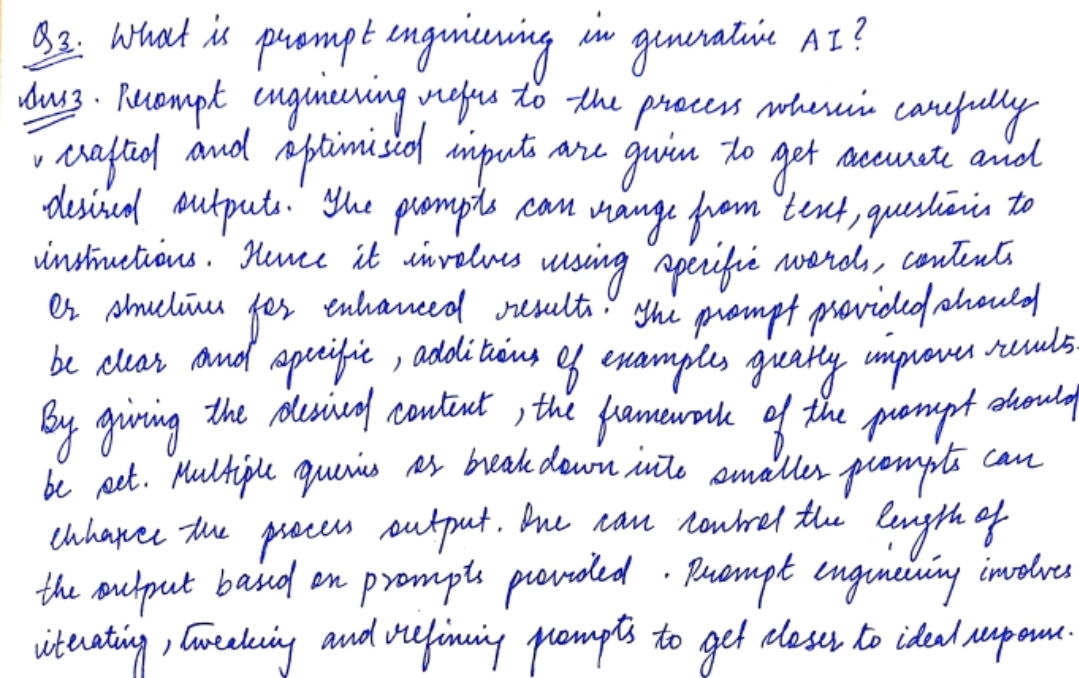 Q3. What is prompt engineering in generative AI?
Ans3. Prompt engineering refers to the process wherein carefully
crafted and optimised inputs are given to get accurate and
desired outputs. The prompts can range from text, questions to
instructions. Hence it involves using specific words, contexts
or structures for enhanced results. The prompt provided should
be clear and specific, additions of examples greatly improves results.
By giving the desired context, the framework of the prompt should
be set. Multiple queries or break down into smaller prompts can
enhance the process output. One can control the length of
the output based on prompts provided. Prompt engineering involves
iterating, tweaking and refining prompts to get closer to ideal response.